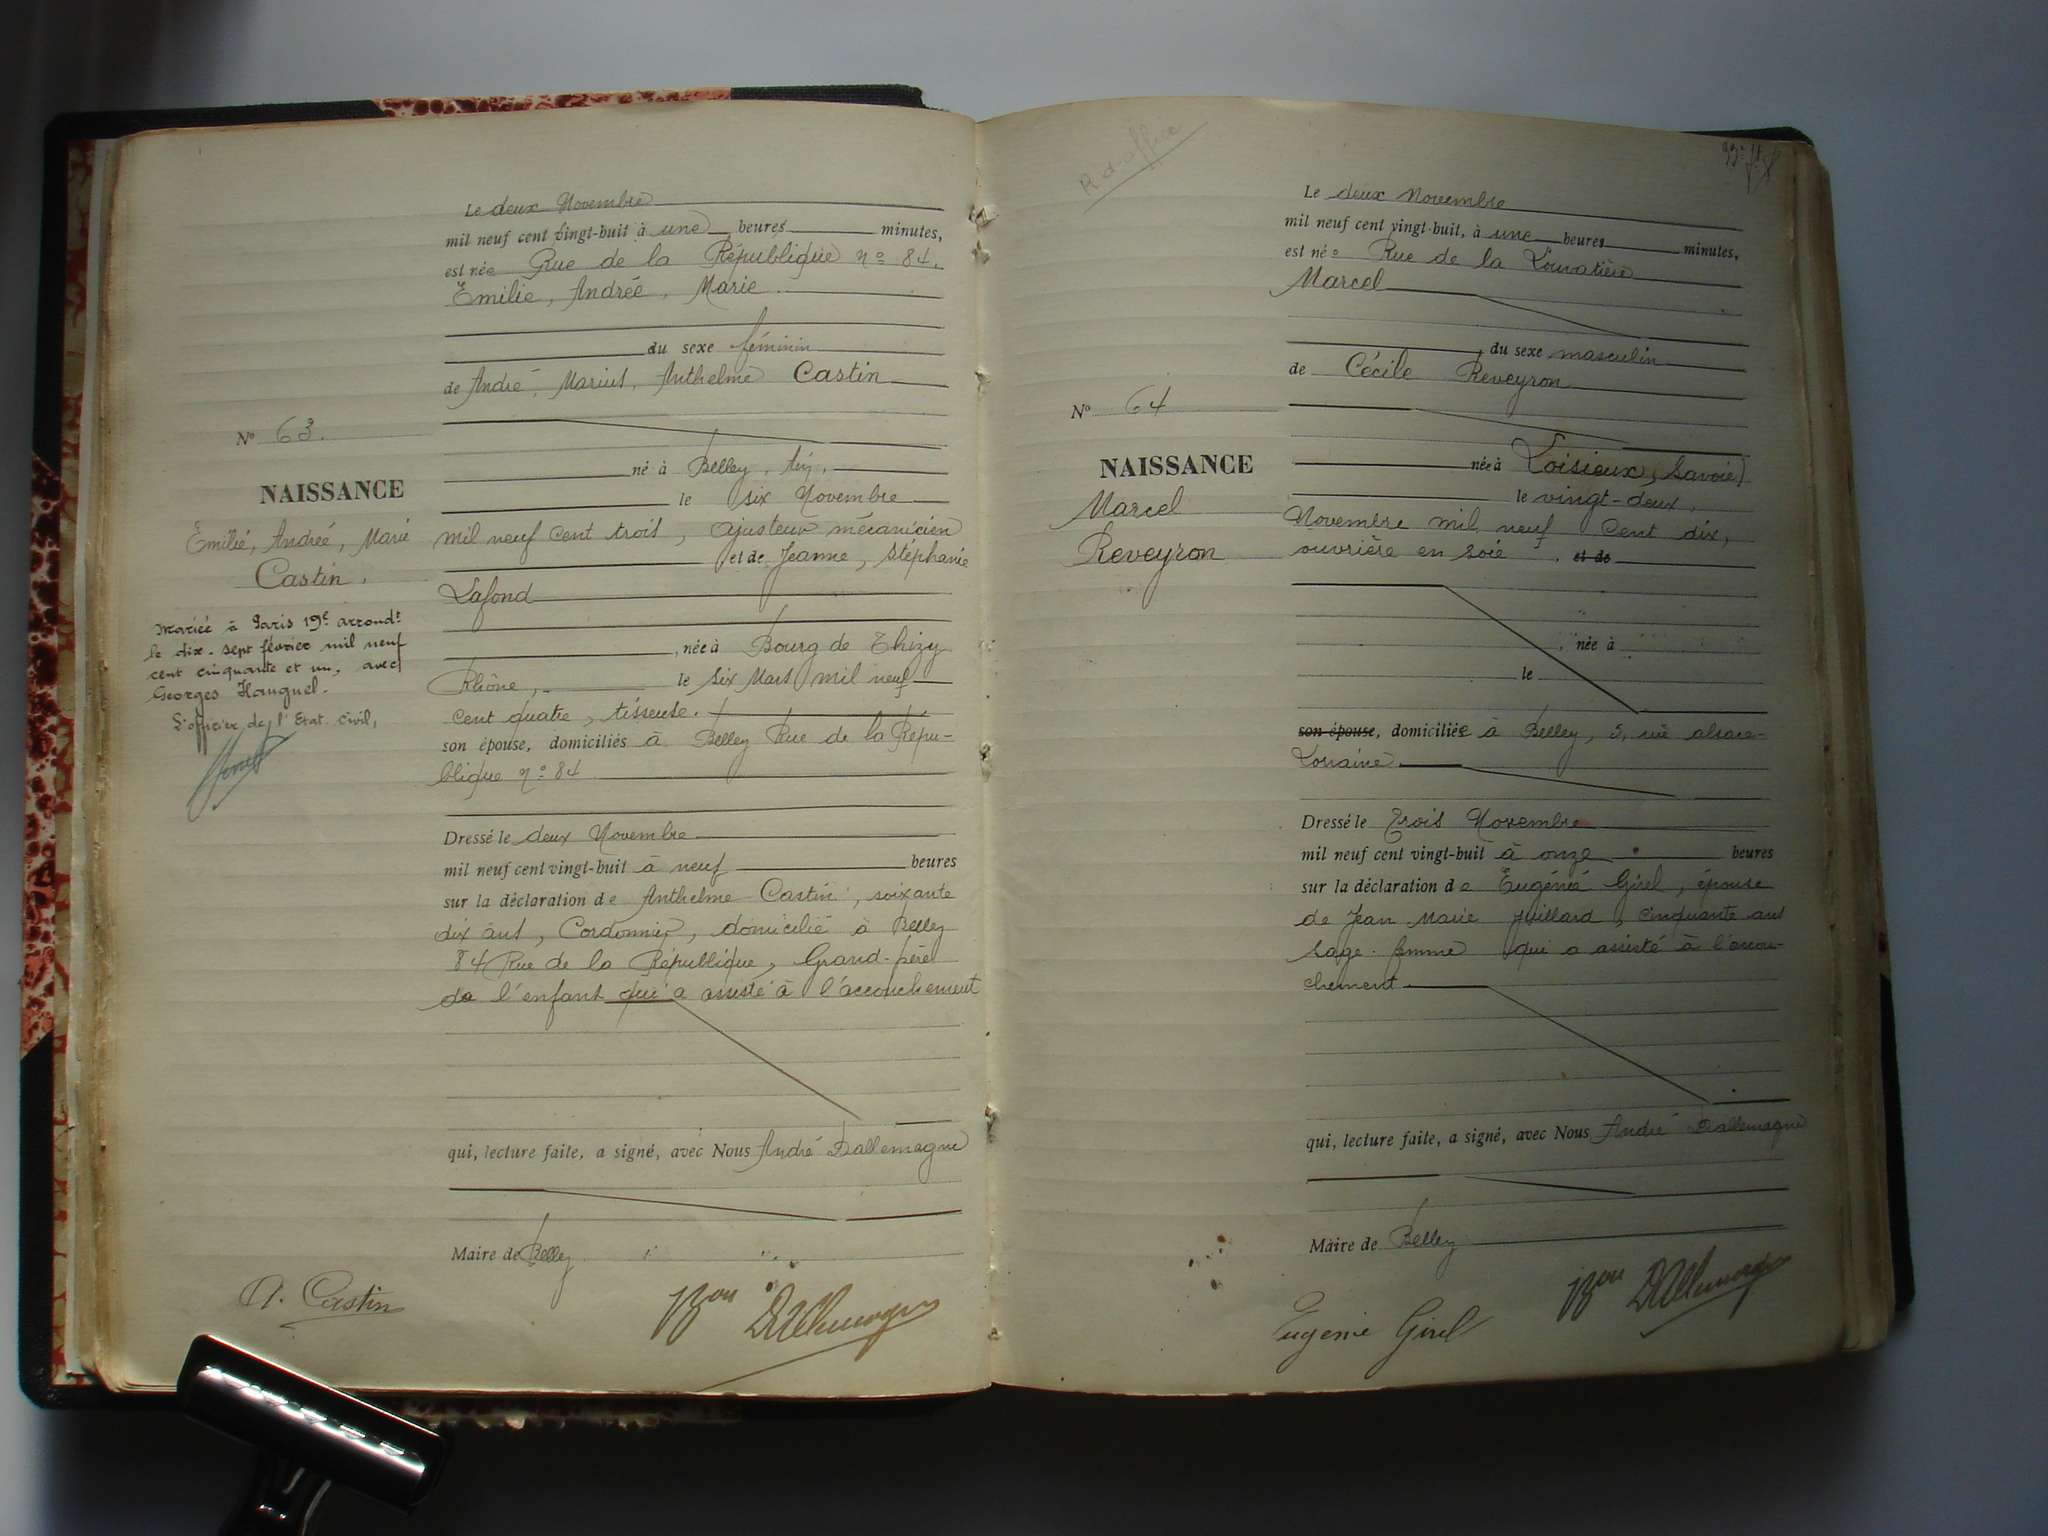 Le deux Novembre
mil neuf cent vingt-huit à une heures minutes,
est née Rue de la République nº 84.
Emilie, Andrée, Marie
du sexe féminin
de André, Marius, Anthelme Castin
né à Belley, Ain,
le six Novembre
mil neuf cent trois, ajusteur mécanicien
et de Jeanne, Stéphanie
Lafond
, née à Bourg de Thizy
Rhône, le six Mars mil neuf
cent quatre, tisseuse.
son épouse, domiciliés à Belley Rue de la Répu-
blique nº 84
Dressé le deux Novembre
mil neuf cent vingt-huit à neuf heures
sur la déclaration de Anthelme Castin, soixante
dix ans, Cordonnier, domicilié à Belley
84 Rue de la République, Grand-père
de l'enfant qui a assisté à l'accouchement
qui, lecture faite, a signé, avec Nous André Dallemagne
Maire de Belley
A. Castin Bon Dallemagne
Nº 63.
NAISSANCE
Emilie, Andrée, Marie
Castin.
Mariée à Paris 19e arrondt
le dix-sept février mil neuf
cent cinquante et un, avec
Georges Hauguel.
L'officier de l'Etat civil,
R d'office
Le deux Novembre
mil neuf cent vingt-huit, à une heures minutes,
est né Rue de la Louvatière
Marcel
du sexe masculin
de Cécile Reveyron
née à Loisieux, (Savoie)
le vingt-deux,
Novembre mil neuf Cent dix,
ouvrière en soie, et de
née à
le
son épouse, domiciliée à Belley, 5, rue alsace-
Lorraine
Dressé le Trois Novembre
mil neuf cent vingt-huit à onze heures
sur la déclaration de Eugénie Girel, épouse
de Jean Marie Juillard, cinquante ans
sage-femme qui a assisté à l'accou-
chement
qui, lecture faite, a signé, avec Nous André Dallemagne
Maire de Belley
Eugénie Girel Bon Dallemagne
Nº 64
NAISSANCE
Marcel
Reveyron